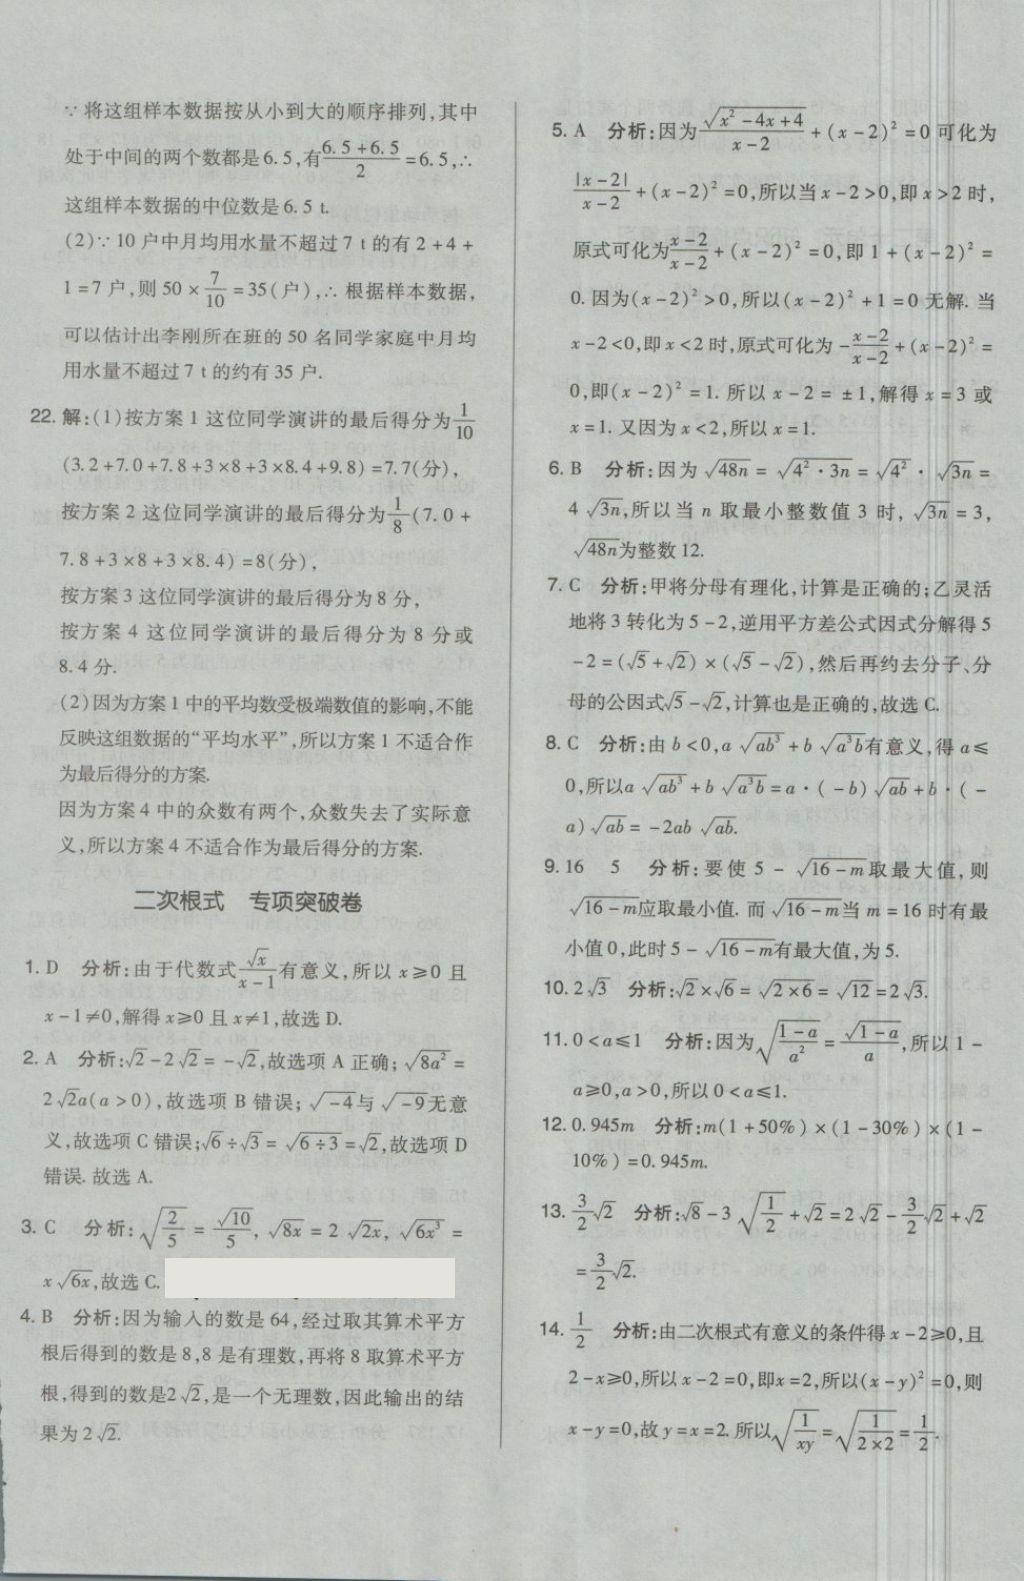 ∵ 将这组样本数据按从小到大的顺序排列,其中
处于中间的两个数都是6.5,有(6.5+6.5)/2=6.5,∴
这组样本数据的中位数是6.5 t.
(2)∵ 10户中月均用水量不超过7 t的有2+4+
1=7户,则50×7/10=35(户),∴ 根据样本数据,
可以估计出李刚所在班的50名同学家庭中月均
用水量不超过7 t的约有35户.
22. 解:(1)按方案1这位同学演讲的最后得分为1/10
(3.2+7.0+7.8+3×8+3×8.4+9.8)=7.7(分),
按方案2这位同学演讲的最后得分为1/8(7.0+
7.8+3×8+3×8.4)=8(分),
按方案3这位同学演讲的最后得分为8分,
按方案4这位同学演讲的最后得分为8分或
8.4分.
(2)因为方案1中的平均数受极端数值的影响,不能
反映这组数据的“平均水平”,所以方案1不适合作
为最后得分的方案.
因为方案4中的众数有两个,众数失去了实际意
义,所以方案4不适合作为最后得分的方案.
二次根式 专项突破卷
1. D 分析:由于代数式√x/(x-1)有意义,所以x≥0且
x-1≠0,解得x≥0且x≠1,故选D.
2. A 分析:√2-2√2=-√2,故选项A正确;√(8a²)=
2√2a(a>0),故选项B错误;√(-4)与√(-9)无意
义,故选项C错误;√6÷√3=√(6÷3)=√2,故选项D
错误.故选A.
3. C 分析:√(2/5)=√10/5,√(8x)=2√(2x),√(6x³)=
x√(6x),故选C.
4. B 分析:因为输入的数是64,经过取其算术平方
根后得到的数是8,8是有理数,再将8取算术平方
根,得到的数是2√2,是一个无理数,因此输出的结
果为2√2.
5. A 分析:因为√(x²-4x+4)/(x-2)+(x-2)²=0可化为
|x-2|/(x-2)+(x-2)²=0,所以当x-2>0,即x>2时,
原式可化为(x-2)/(x-2)+(x-2)²=0,即1+(x-2)²=
0.因为(x-2)²>0,所以(x-2)²+1=0无解.当
x-2<0,即x<2时,原式可化为-(x-2)/(x-2)+(x-2)²=
0,即(x-2)²=1.所以x-2=±1,解得x=3或
x=1.又因为x<2,所以x=1.
6. B 分析:因为√(48n)=√(4²·3n)=√(4²)·√(3n)=
4√(3n),所以当n取最小整数值3时,√(3n)=3,
√(48n)为整数12.
7. C 分析:甲将分母有理化,计算是正确的;乙灵活
地将3转化为5-2,逆用平方差公式因式分解得5
-2=(√5+√2)×(√5-√2),然后再约去分子、分
母的公因式√5-√2,计算也是正确的,故选C.
8. C 分析:由b<0,a√(ab³)+b√(a³b)有意义,得a≤
0,所以a√(ab³)+b√(a³b)=a·(-b)√(ab)+b·(-
a)√(ab)=-2ab√(ab).
9. 16 5 分析:要使5-√(16-m)取最大值,则
√(16-m)应取最小值.而√(16-m)当m=16时有最
小值0,此时5-√(16-m)有最大值,为5.
10. 2√3 分析:√2×√6=√(2×6)=√12=2√3.
11. 0<a≤1 分析:因为√((1-a)/a²)=√(1-a)/a,所以1-
a≥0,a>0,所以0<a≤1.
12. 0.945m 分析:m(1+50%)×(1-30%)×(1-
10%)=0.945m.
13. 3/2√2 分析:√8-3√(1/2)+√2=2√2-3/2√2+√2
=3/2√2.
14. 1/2 分析:由二次根式有意义的条件得x-2≥0,且
2-x≥0,所以x-2=0,即x=2,所以(x-y)²=0,则
x-y=0,故y=x=2.所以√(1/xy)=√(1/(2×2))=1/2.